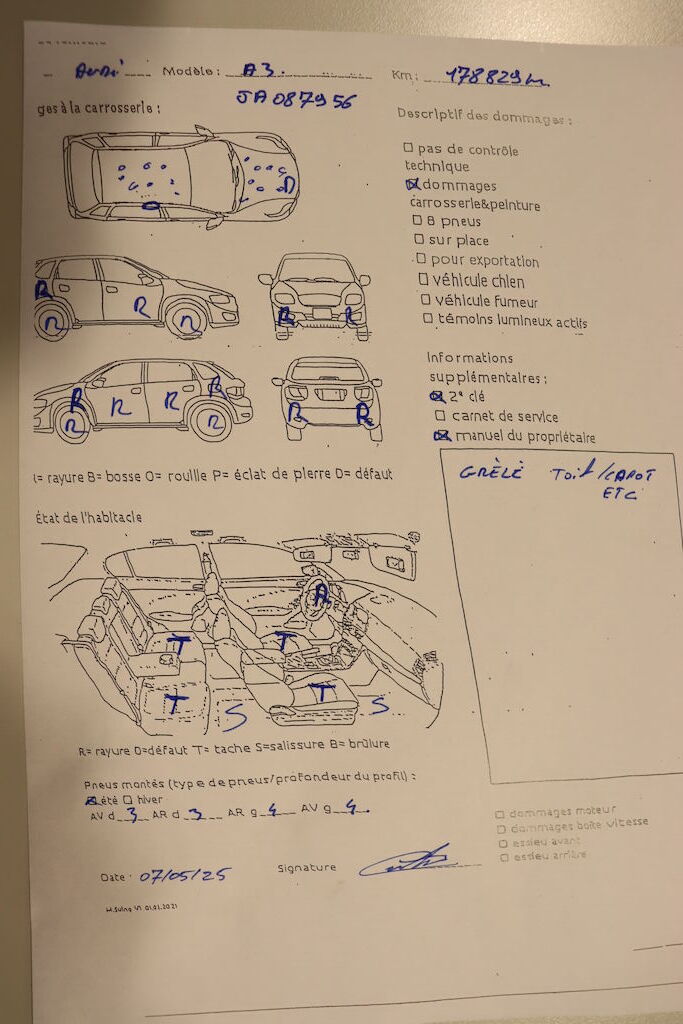 Audi Modèle : A3. Km : 178829km
JA087956
ges à la carrosserie :
Descriptif des dommages :
pas de contrôle
technique
dommages
carrosserie&peinture
8 pneus
sur place
pour exportation
véhicule chien
véhicule fumeur
témoins lumineux actifs
D
R R
R R
R R
R R R R
R R
R R
Informations
supplémentaires :
2ᵉ clé
carnet de service
manuel du propriétaire
= rayure B= bosse O= rouille P= éclat de pierre D= défaut
GRÈLÈ Toit/CAPOT
ETC
État de l'habitacle
R
T T
T T
S S
R= rayure D=défaut T= tache S=salissure B= brûlure
Pneus montés (type de pneus/profondeur du profil) :
été hiver
AV d 3 AR d 3 AR g 4 AV g 4
dommages moteur
dommages boîte vitesse
essieu avant
essieu arrière
Date : 07/05/25 Signature
01.01.2021